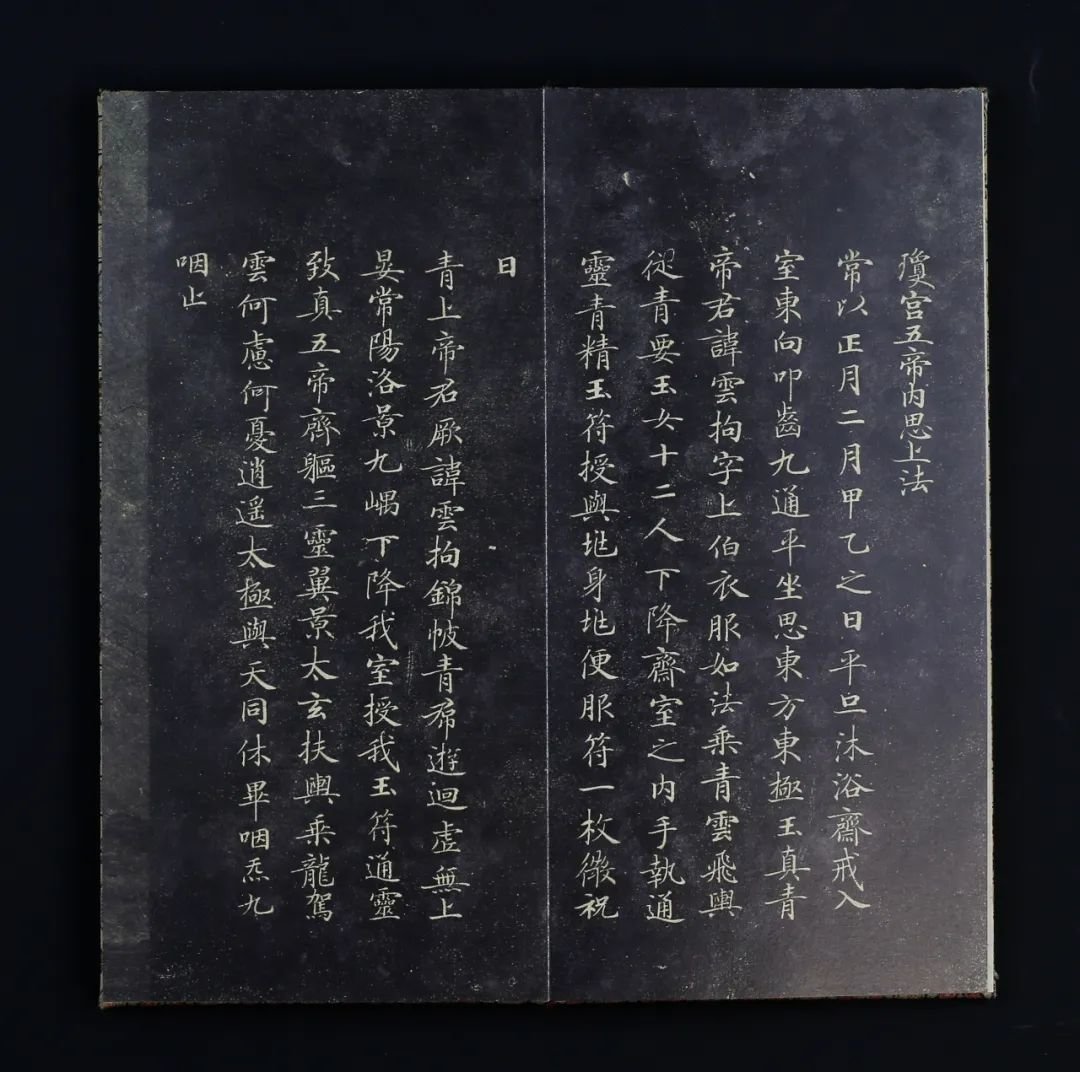 瓊宮五帝內思上法
常以正月二月甲乙之日平旦沐浴齋戒入
室東向叩齒九通平坐思東方東極玉真青
帝君諱雲拘字上伯衣服如法乘青雲飛輿
從青要玉女十二人下降齋室之內手執通
靈青精玉符授與兆身兆便服符一枚微祝
曰
青上帝君厥諱雲拘錦帔青帬遊迴虛無上
晏常陽洛景九嵎下降我室授我玉符通靈
致真五帝齊軀三靈翼景太玄扶輿乘龍駕
雲何慮何憂逍遥太極與天同休畢咽炁九
咽止